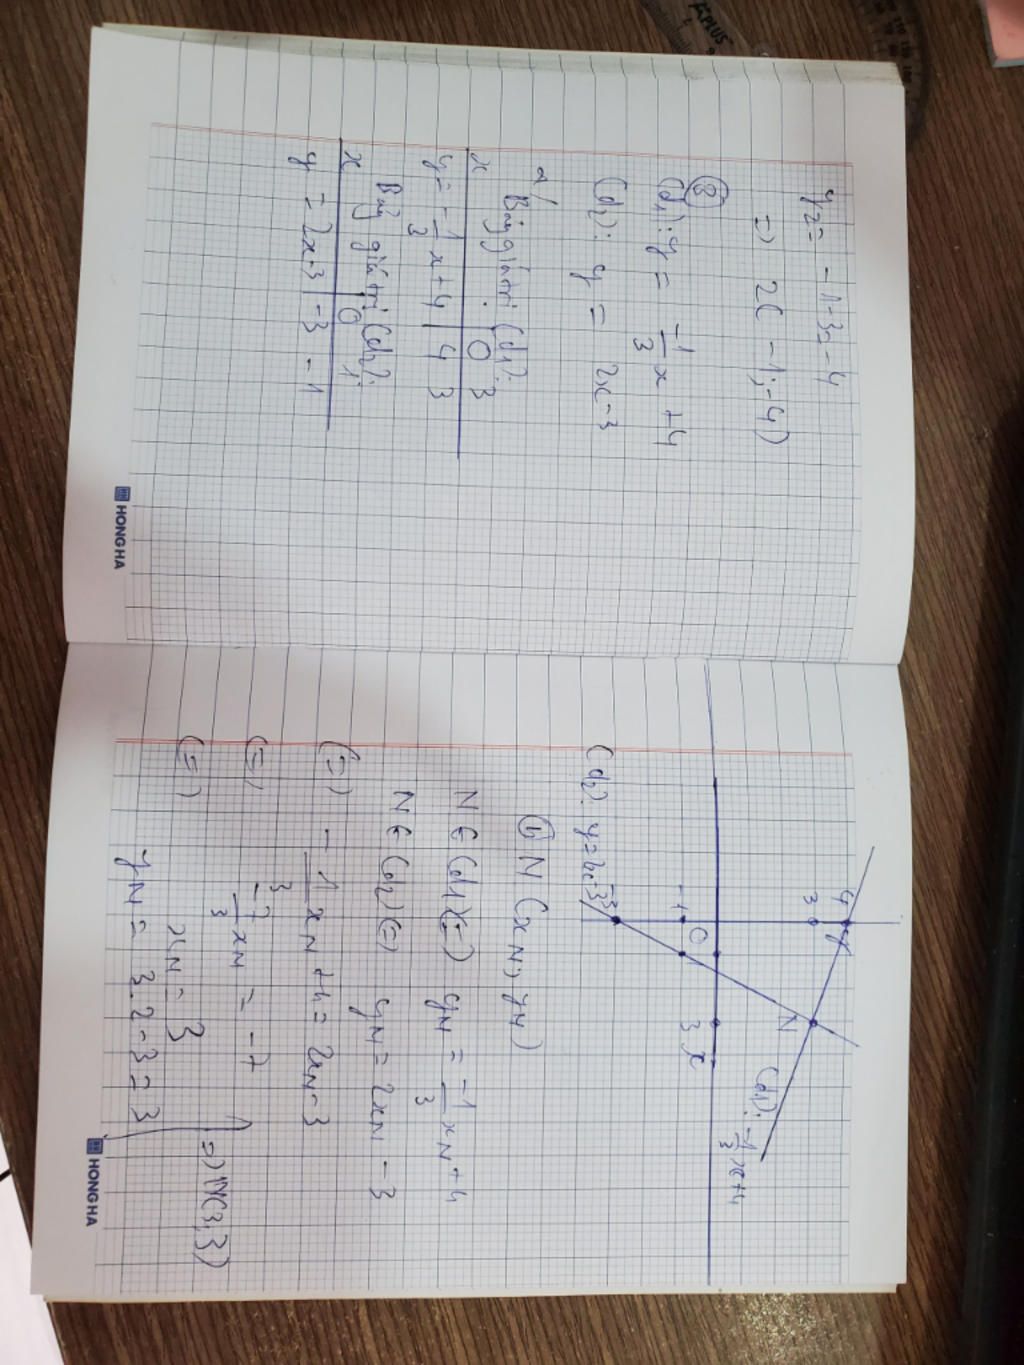 y2 = -1.3x-4
=) 2( -1;-4)
⑧
(d1): y = -1/3 x +4
(d2): y = 2x-3
a/ Bảng giá trị (d1):
x 0 3
y = -1/3 x+4 4 3
Bảng giá trị (d2):
x 0 1
y = 2x-3 -3 -1
HONG HA
4 y
3
N
(d1): -1/3 x+4
O 1 3 x
-1
-3
(d2): y=2x-3
ⓑ N (xN; yN)
N ∈ (d1) (=) yN = -1/3 xN +4
N ∈ (d2) (=) yN = 2xN - 3
(=) -1/3 xN +4 = 2xN-3
(=) -7/3 xN = -7
(=) xN = 3
yN = 3.2-3 = 3
=) N(3,3)
HONG HA
APLUS